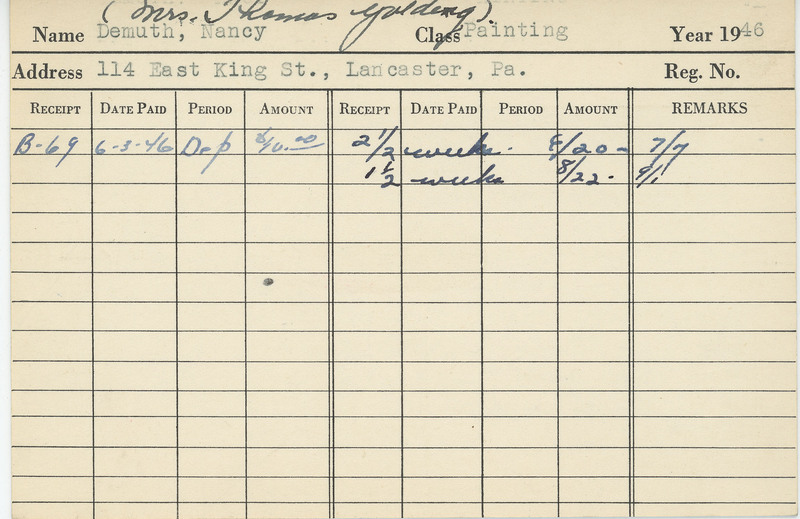 (Mrs. Thomas Golding).
Name Demuth, Nancy Class Painting Year 1946
Address 114 East King St., Lancaster, Pa. Reg. No.
RECEIPT DATE PAID PERIOD AMOUNT RECEIPT DATE PAID PERIOD AMOUNT REMARKS
B-69 6-3-46 Dep $10.00 2 1/2 weeks. 6/20- 7/7
1 1/2 weeks 8/22- 9/1